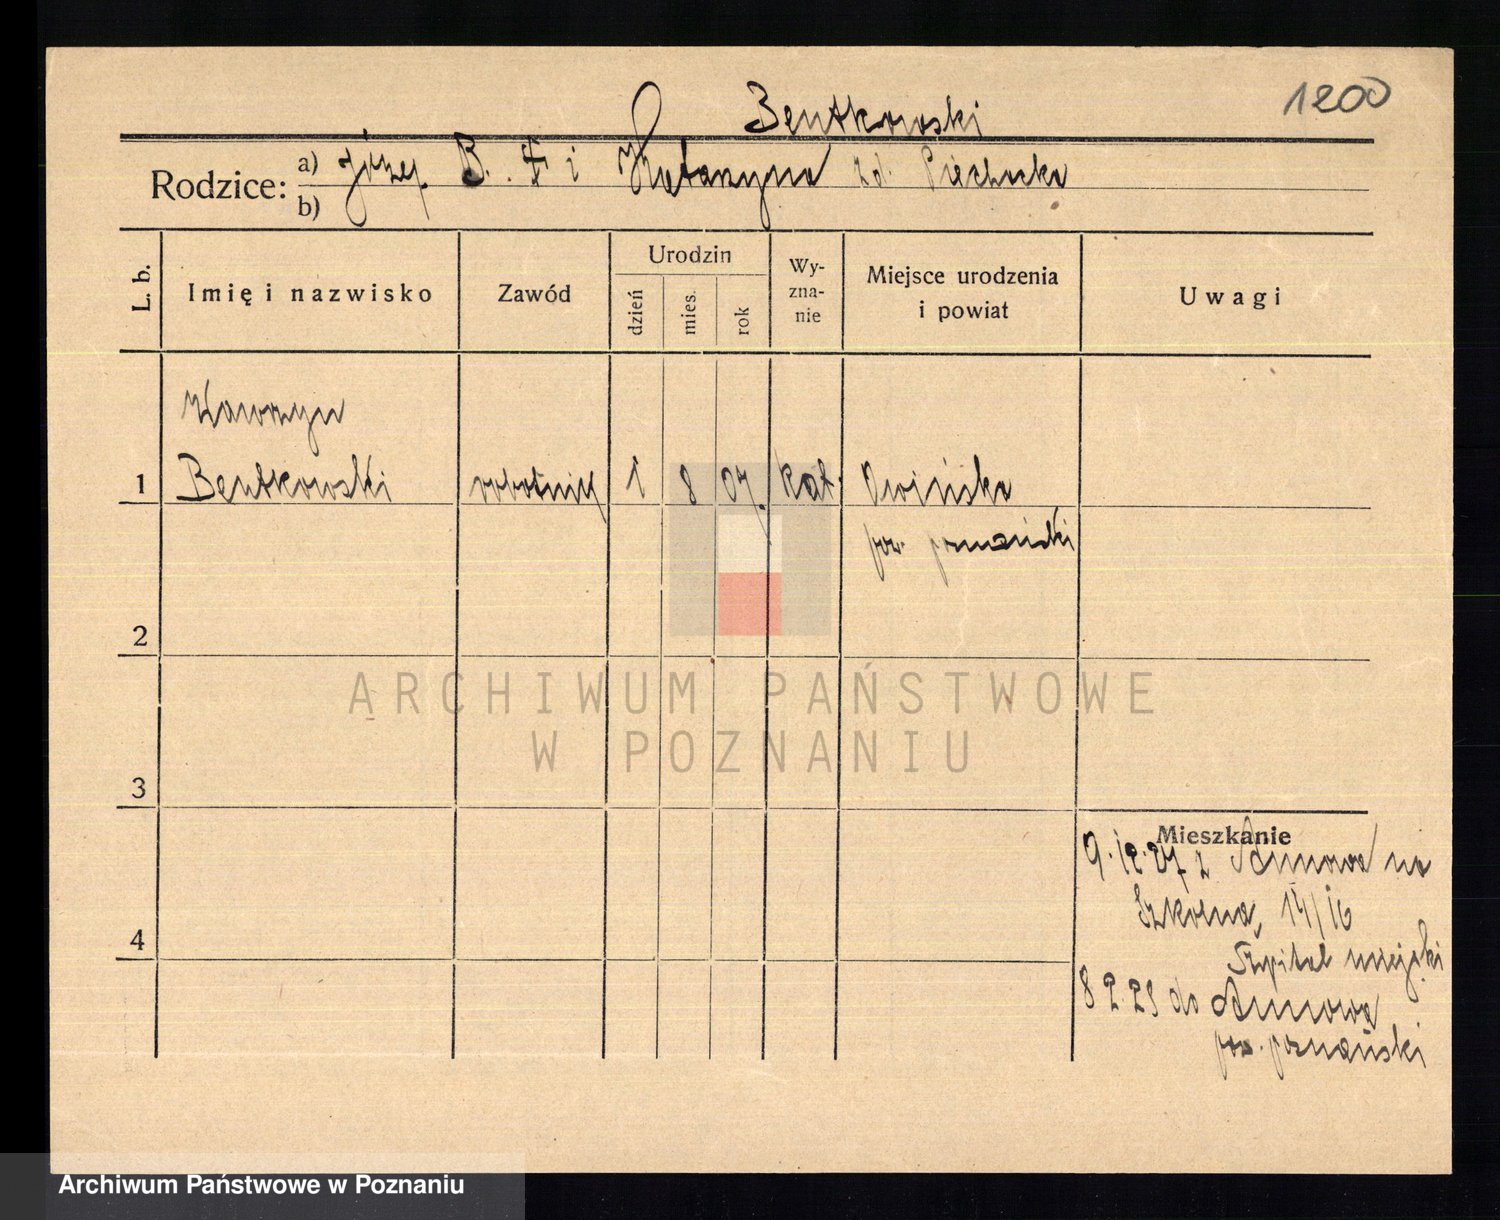 1200
Bentkowski
Rodzice:
a) Józef B. i Katarzyna zd. Piechocka
b)
L. b.
Imię i nazwisko
Zawód
Urodzin
dzień
mies.
rok
Wy-
zna-
nie
Miejsce urodzenia
i powiat
Uwagi
Wawrzyn
1 Bentkowski robotnik 1 8 07. kat. Owińska
pow. poznański
2
3
4
Mieszkanie
9.12.27 z na
Szkolna, 14/16
Szpital miejski
8 2 28 do
pow. poznański
ARCHIWUM PAŃSTWOWE
W POZNANIU
Archiwum Państwowe w Poznaniu